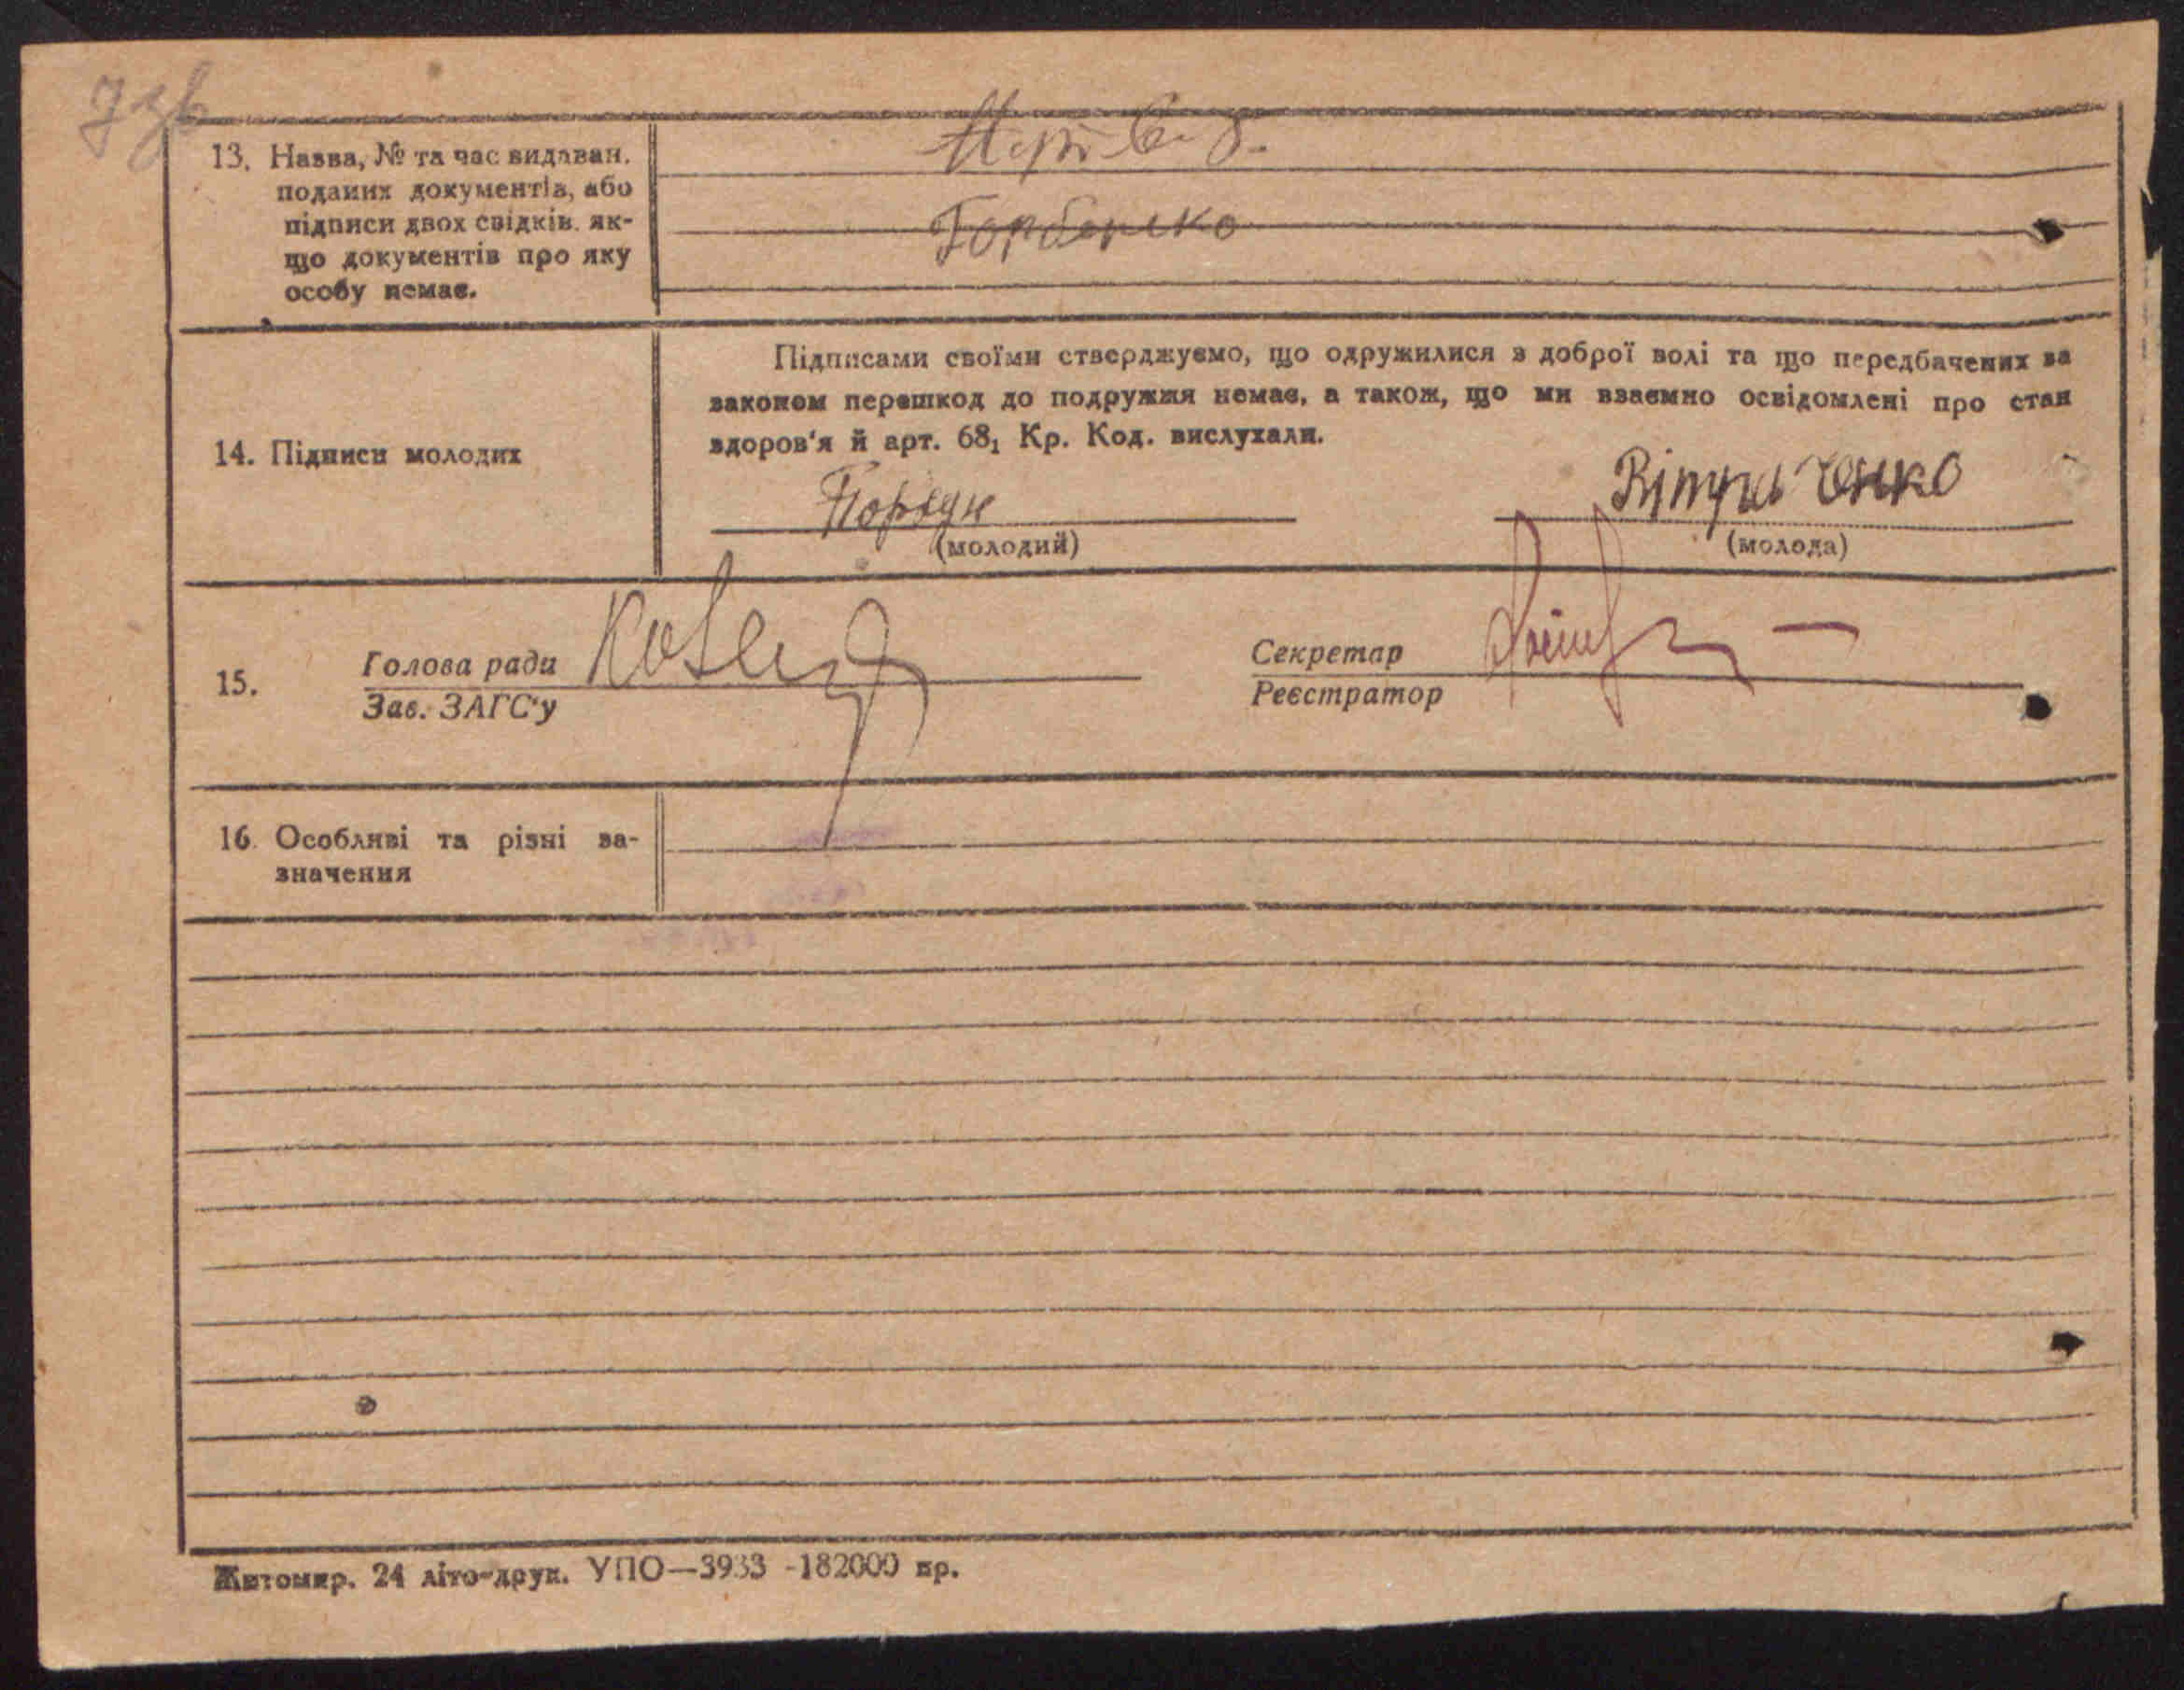 13. Назва, № та час видаван.
поданих документів, або
підписи двох свідків, як-
що документів про яку
особу немає.
Підписами своїми стверджуємо, що одружилися з доброї волі та що передбачених за
законом перешкод до подружжя немає, а також, що ми взаємно освідомлені про стан
здоров'я й арт. 68₁ Кр. Код. вислухали.
14. Підписи молодих
(молодий)
(молода)
15.
Голова ради
Зав. ЗАГС'у
Секретар
Реєстратор
16. Особливі та різні за-
значення
Житомир. 24 літо-друк. УПО—3933 -182000 пр.